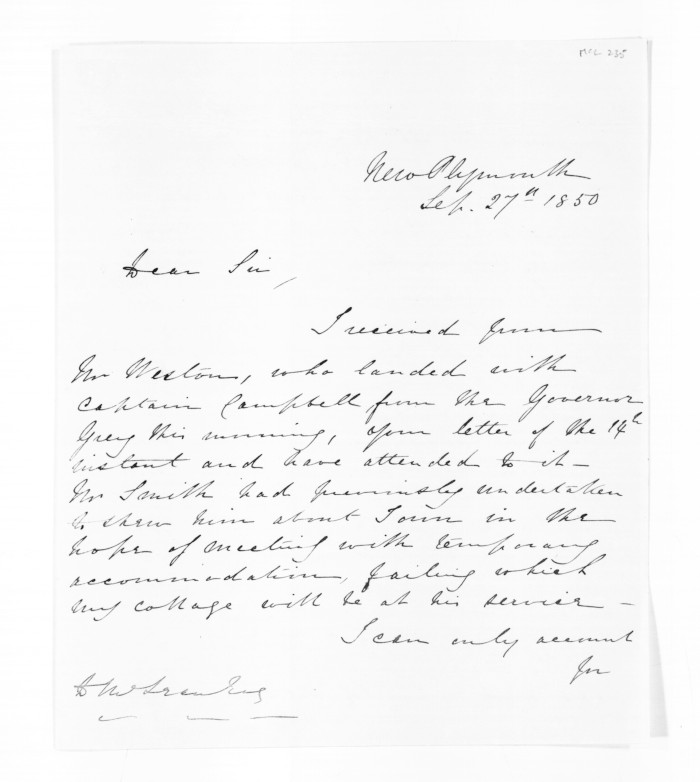 McL 235
New Plymouth
Sep. 27th 1850
Dear Sir,
I received from
Mr Weston, who landed with
Captain Campbell from the Governor
Grey this morning, your letter of the 14th
instant and have attended to it –
Mr Smith had previously undertaken
to shew him about Town in the
hope of meeting with temporary
accommodation, failing which
my cottage will be at his service –
I can only account
for
D McLean Esq